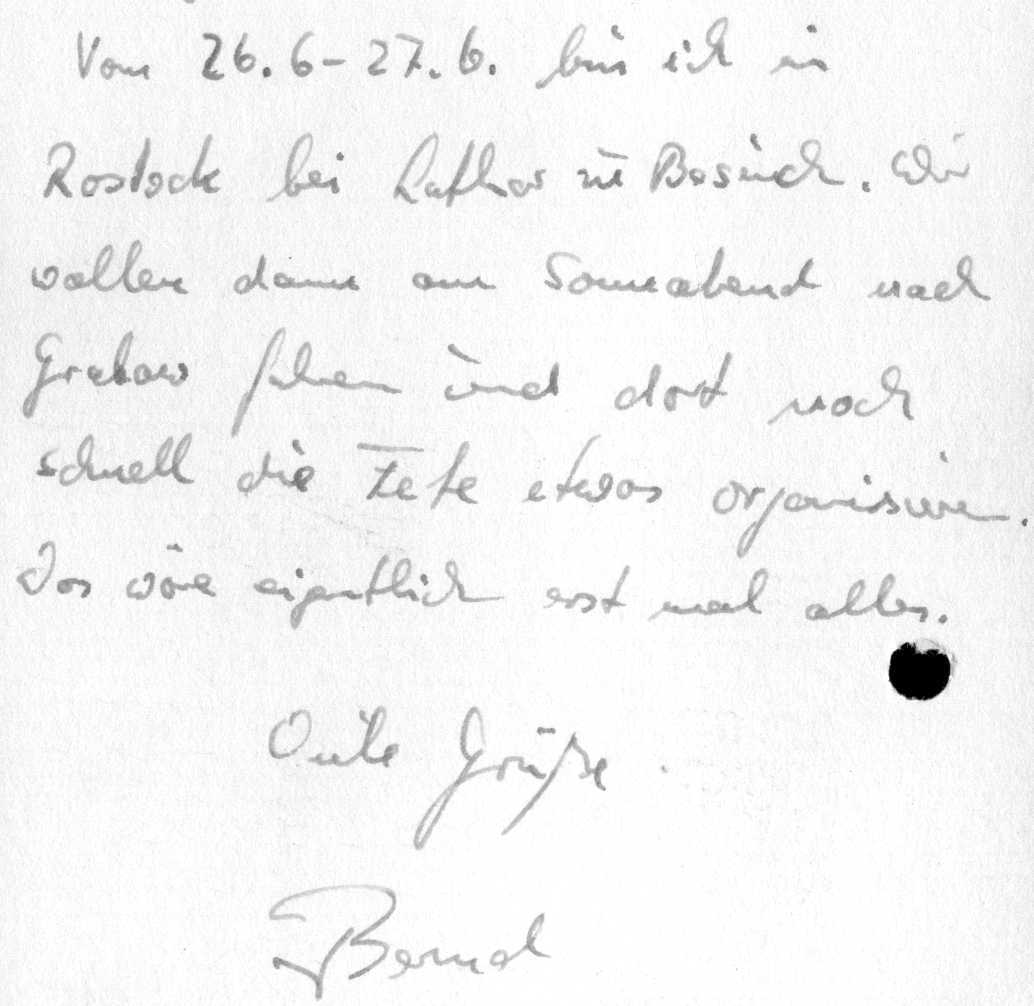 Vom 26.6-27.6. bin ich in
Rostock bei Lothar zu Besuch. Wir
wollen dann am Sonnabend nach
Grabow fahren und dort noch
schnell die Fete etwas organisieren.
Das wäre eigentlich erst mal alles.
Gute Grüße
Bernd